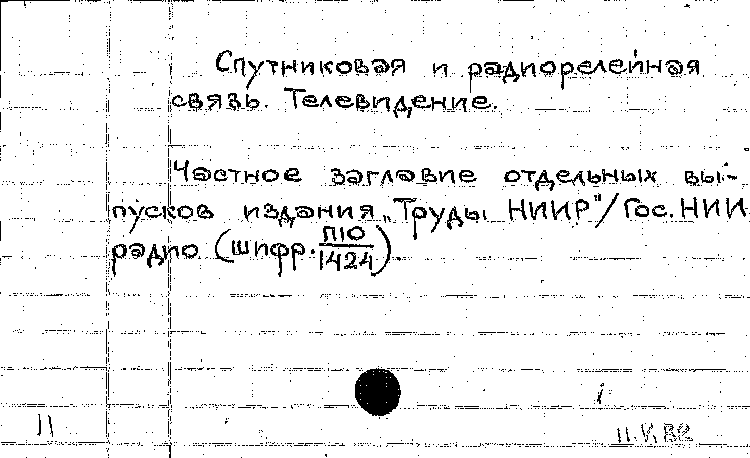 Спутниковая и радиорелейная
связь. Телевидение.
Частное заглавие отдельных вы-
пусков издания „Труды НИИР"/Гос. НИИ
радио (шифр. П10/1424)
11